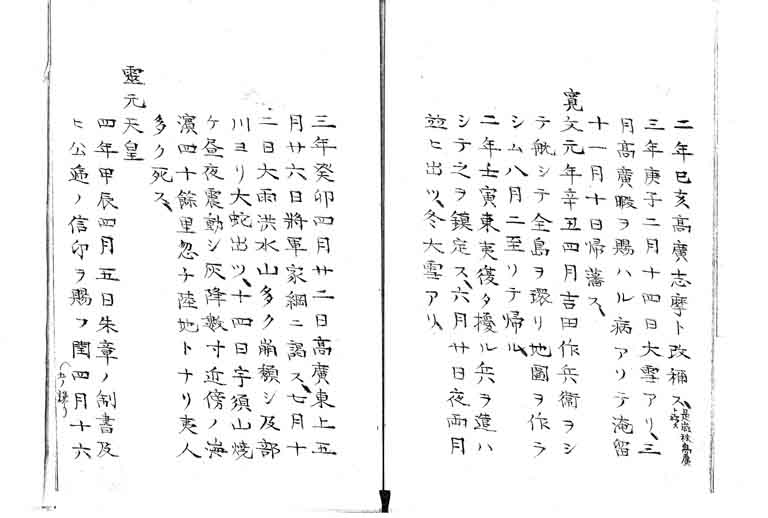 二年己亥高廣志摩ト改稱ス、
三年庚子二月十四日大雪アリ、三
月高廣暇ヲ賜ハル病アリテ淹留
十一月十日帰藩ス、
寛文元年辛丑四月吉田作兵衛ヲシ
テ航シテ全島ヲ環リ地圖ヲ作ラ
シム八月二至リテ帰ル、
二年壬寅東夷復タ擾ル兵ヲ遣ハ
シテ之ヲ鎮定ス、六月廿日夜両月
竝ヒ出ツ、冬大雪アリ、
三年癸卯四月廿二日高廣東上五
月廿六日將軍家綱ニ謁ス、七月十
二日大雨洪水山多ク崩頽シ及部
川ヨリ大蛇出ツ、十四日宇須山焼
ケ昼夜震動シ灰降數寸近傍ノ海
濱四十餘里忽チ陸地トナリ夷人
多ク死ス、
靈元天皇
四年甲辰四月五日朱章ノ制書及
ヒ公逓ノ信印ヲ賜フ閏四月十六